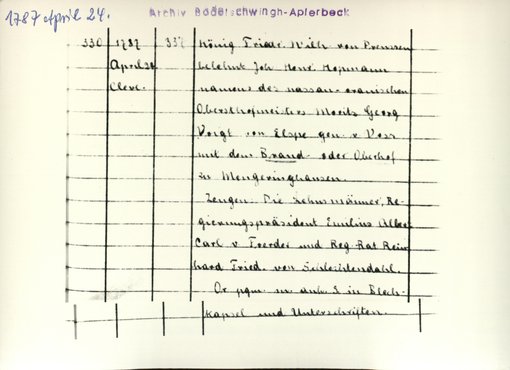 1787 April 24.
Archiv Bodelschwingh-Aplerbeck
330 1787 337 König Friedr. Wilh. von Preussen
April 24 belehnt Joh. Henr. Hopmann
Cleve. namens des nassau-oranischen
Obersthofmeisters Moritz Georg
Voigt von Elspe gen. v.
mit dem Brand- oder Oberhof
zu Mengeringhausen.
Zeugen: Die Lehnsmänner, Re-
gierungspräsident Emilius
Carl v. und Reg. Rat Rein-
hard Fried. von Schlechtendahl.
Or. pgm. m. anh. S. in Blech-
kapsel und Unterschriften.